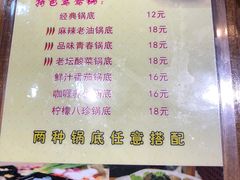 特色鸳鸯锅:
经典锅底 12元
麻辣老油锅底 18元
品味青春锅底 18元
老坛酸菜锅底 18元
鲜汁番茄锅底 16元
咖喱 锅底 16元
柠檬八珍锅底 18元
两种锅底任意搭配